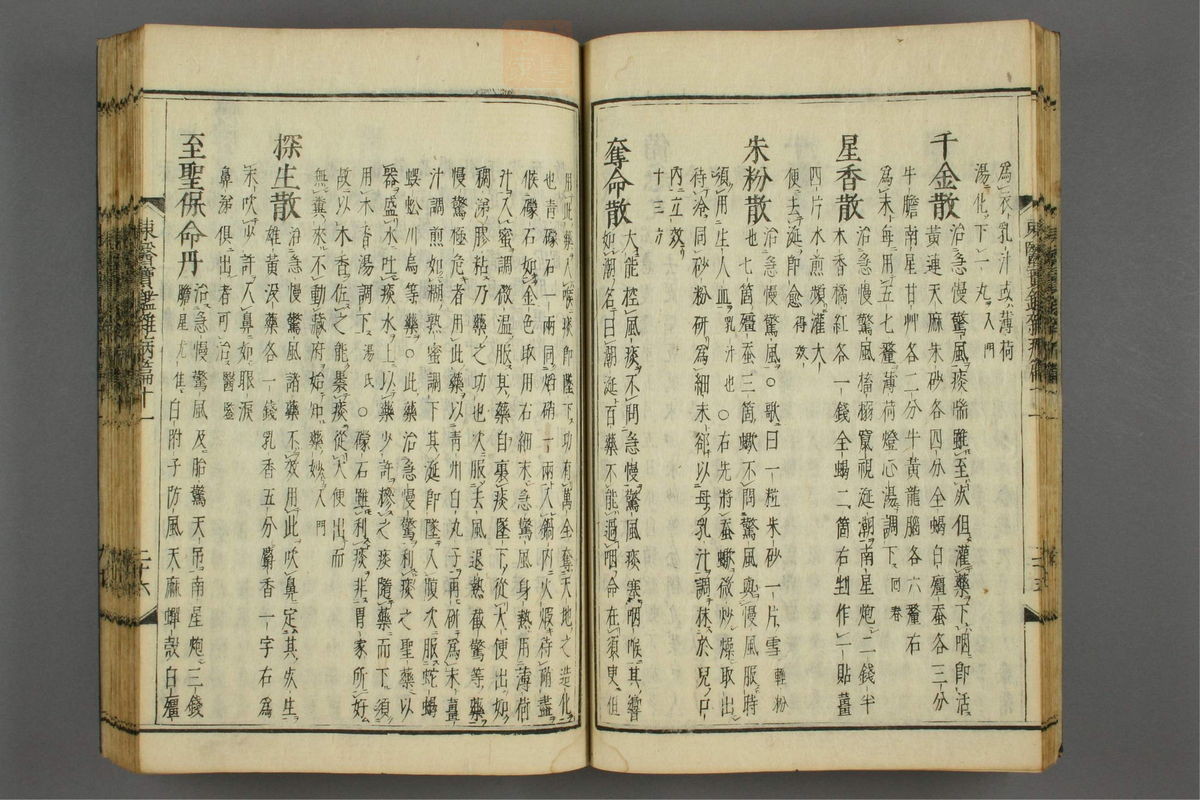 爲衣乳汁或薄荷
湯化下一丸入門
千金散治急慢驚風痰喘雖至死但灌藥下咽即活
黃連天麻朱砂各四分全蝎白殭蚕各三分
牛膽南星甘艸各二分牛黃龍腦各六釐右
爲末每用五七釐薄荷燈心湯調下回春
星香散治急慢驚風搐搦竄視涎潮南星炮二錢半
木香橘紅各一錢全蝎二箇右剉作一貼薑
四片水煎頻灌大
便去涎即愈得效
朱粉散治急慢驚風○歌曰一粒朱砂一片雪輕粉
也七箇殭蚕三箇蝎不問驚風與慢風服時
須用生人血乳汁也○右先將蚕蝎微炒燥取出
待冷同砂粉硏爲細末却以母乳汁調抹於兒口
內立效
十三方
奪命散大能控風痰不問急慢驚風痰塞咽喉其響
如潮名曰潮涎百藥不能過咽命在須臾但
用此藥入喉痰即墜下功有萬全奪天地之造化
也靑礞石一兩同焰硝一兩入鍋內火煆待硝盡
候礞石如金色取用右細末急驚風身熱用薄荷
汁入蜜調微溫服其藥自裹痰墜下從大便出如
稠涕膠粘乃藥之功也次服去風退熱截驚等藥
慢驚極危者用此藥以靑州白丸子再硏爲末薑
汁調煎如糊熟蜜調下其涎即墜入腹次服蛇蝎
蜈蚣川烏等藥○此藥治急慢驚利痰之聖藥以
器盛水吐痰水上以藥少許摻之痰隨藥而下須
用木香湯調下湯氏○礞石雖利痰非胃家所好
故以木香佐之能裹痰從大便出而
無糞來不動藏府始知藥妙入門
探生散治急慢驚風諸藥不效用此吹鼻定其死生
雄黃沒藥各一錢乳香五分麝香一字右爲
末吹少許入鼻如眼淚
鼻涕俱出者可治醫鑑
至聖保命丹治急慢驚風及胎驚天吊南星炮三錢
膽星尤佳白附子防風天麻蟬殼白殭
東醫寶鑑雜病篇十一
二十六